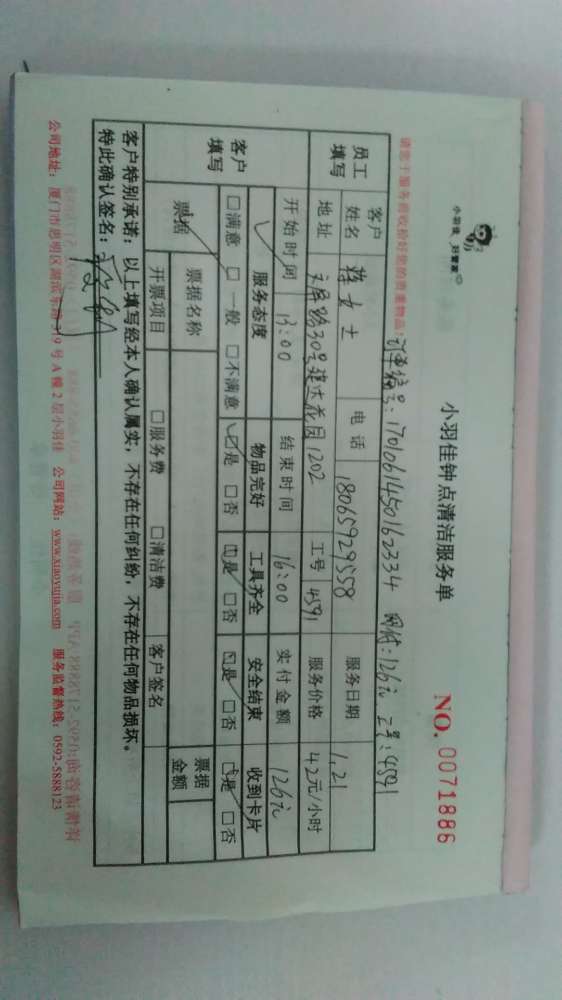 小羽佳 好管家
小羽佳钟点清洁服务单
NO. 0071886
请您于服务前收拾好您的贵重物品!
订单编号:1701061450162334 网付:126元 工号:4591
员工填写
客户姓名 蒋女士 电话 18065929558 服务日期 1.21
地址 30号建达花园1202 工号 4591 服务价格 42元/小时
开始时间 13:00 结束时间 16:00 实付金额 126元
客户填写
服务态度 物品完好 工具齐全 安全结束 收到卡片
□满意 □一般 □不满意 □是 □否 □是 □否 □是 □否 □是 □否
票据 票据名称 票据金额
开票项目 □服务费 □清洁费 客户签名
客户特别承诺:以上填写经本人确认属实,不存在任何纠纷,不存在任何物品损坏。
特此确认签名:
公司地址:厦门市思明区湖滨东路319号A幢2层小羽佳 公司网站:www.xiaoyujia.com 服务监督热线:0592-5888123